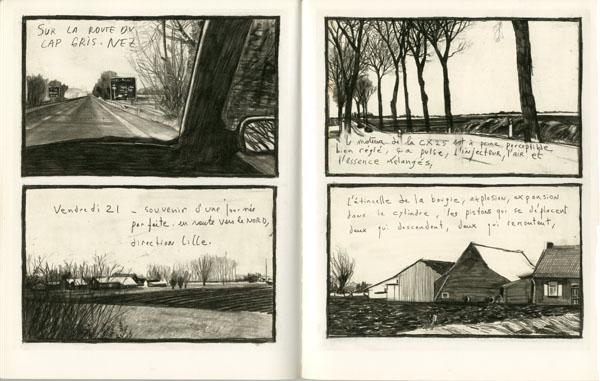 SUR LA ROUTE DU
CAP GRIS-NEZ
Vendredi 21 - souvenir d'une journée
parfaite. en route vers le NORD,
direction Lille.
le moteur de la CX25 est à peine perceptible
bien réglé, ça pulse, l'injecteur, l'air et
l'essence mélangés,
L'étincelle de la bougie, explosion, expansion
dans le cylindre, les pistons qui se déplacent
deux qui descendent, deux qui remontent,